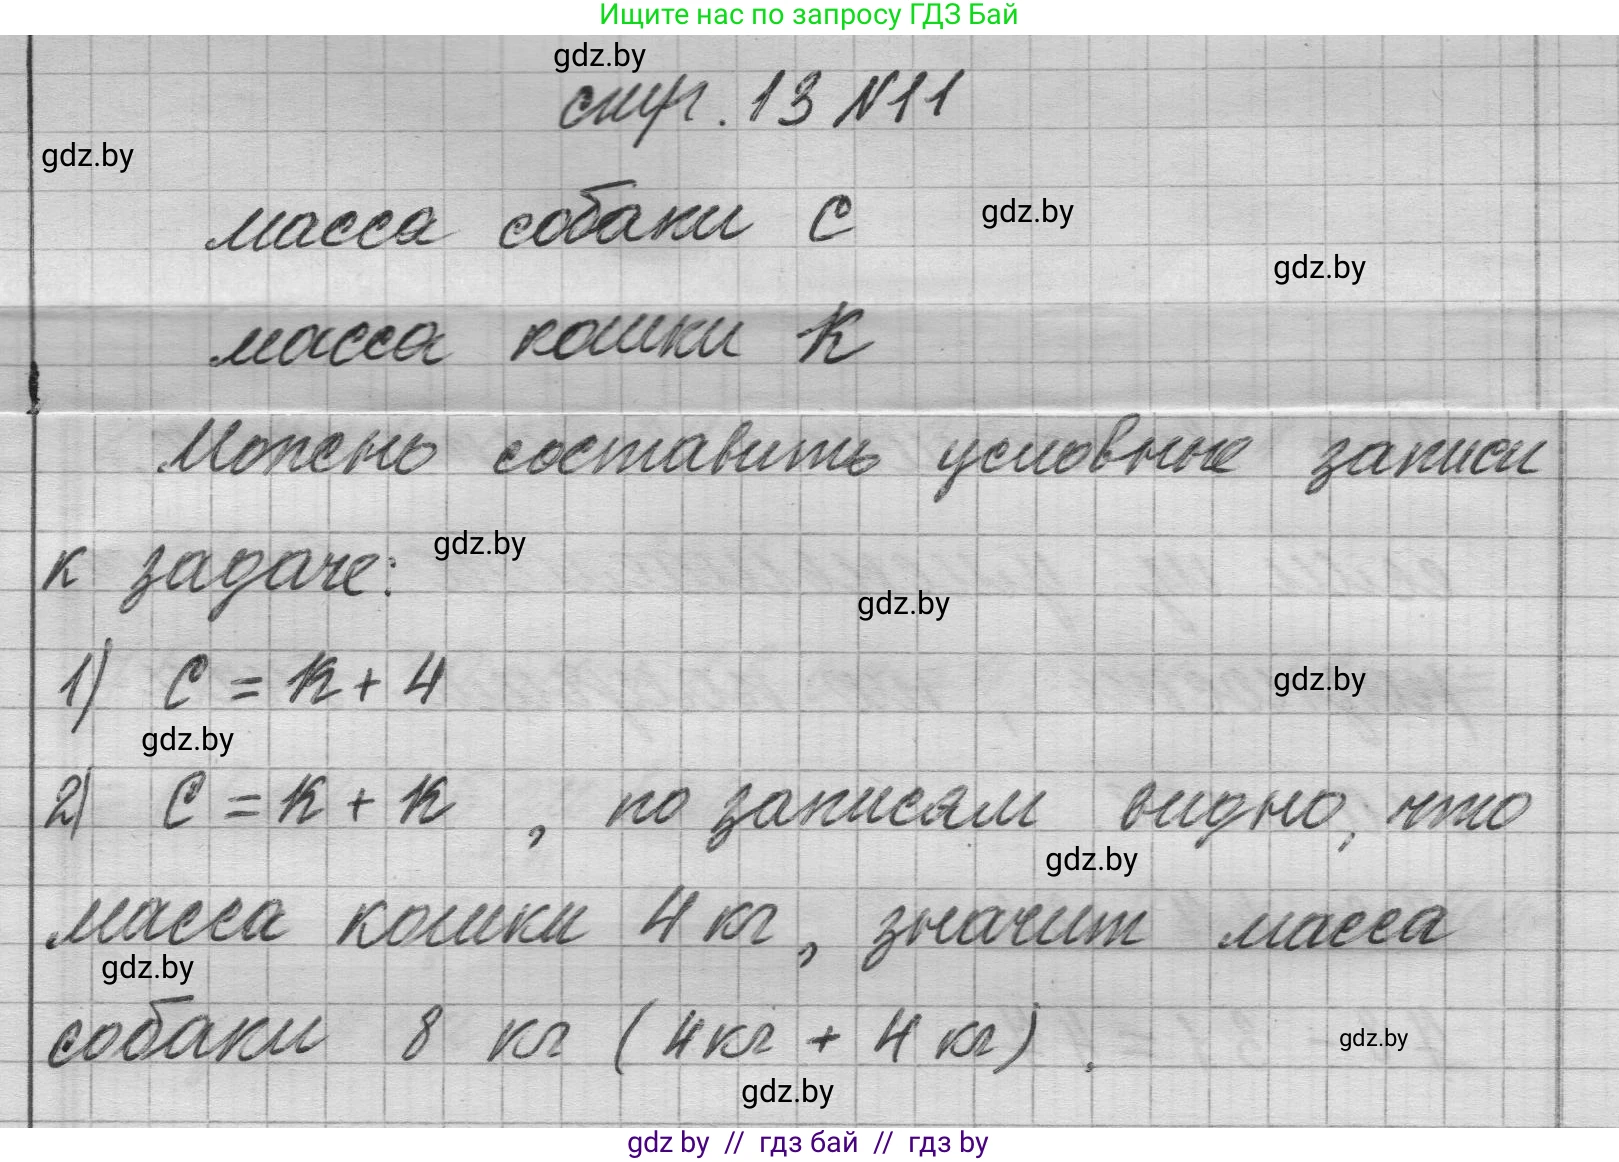 Ищите нас по запросу ГДЗ Бай
gdz.by
стр. 13 №11
gdz.by
масса собаки С
gdz.by
gdz.by
масса кошки К
Можно составить условные записи
к задаче:
gdz.by
gdz.by
1) С = К + 4
gdz.by
gdz.by
2) С = К + К , по записям видно, что
gdz.by
масса кошки 4 кг, значит масса
gdz.by
собаки 8 кг (4 кг + 4 кг).
gdz.by
gdz.by
gdz by // гдз бай // гдз by